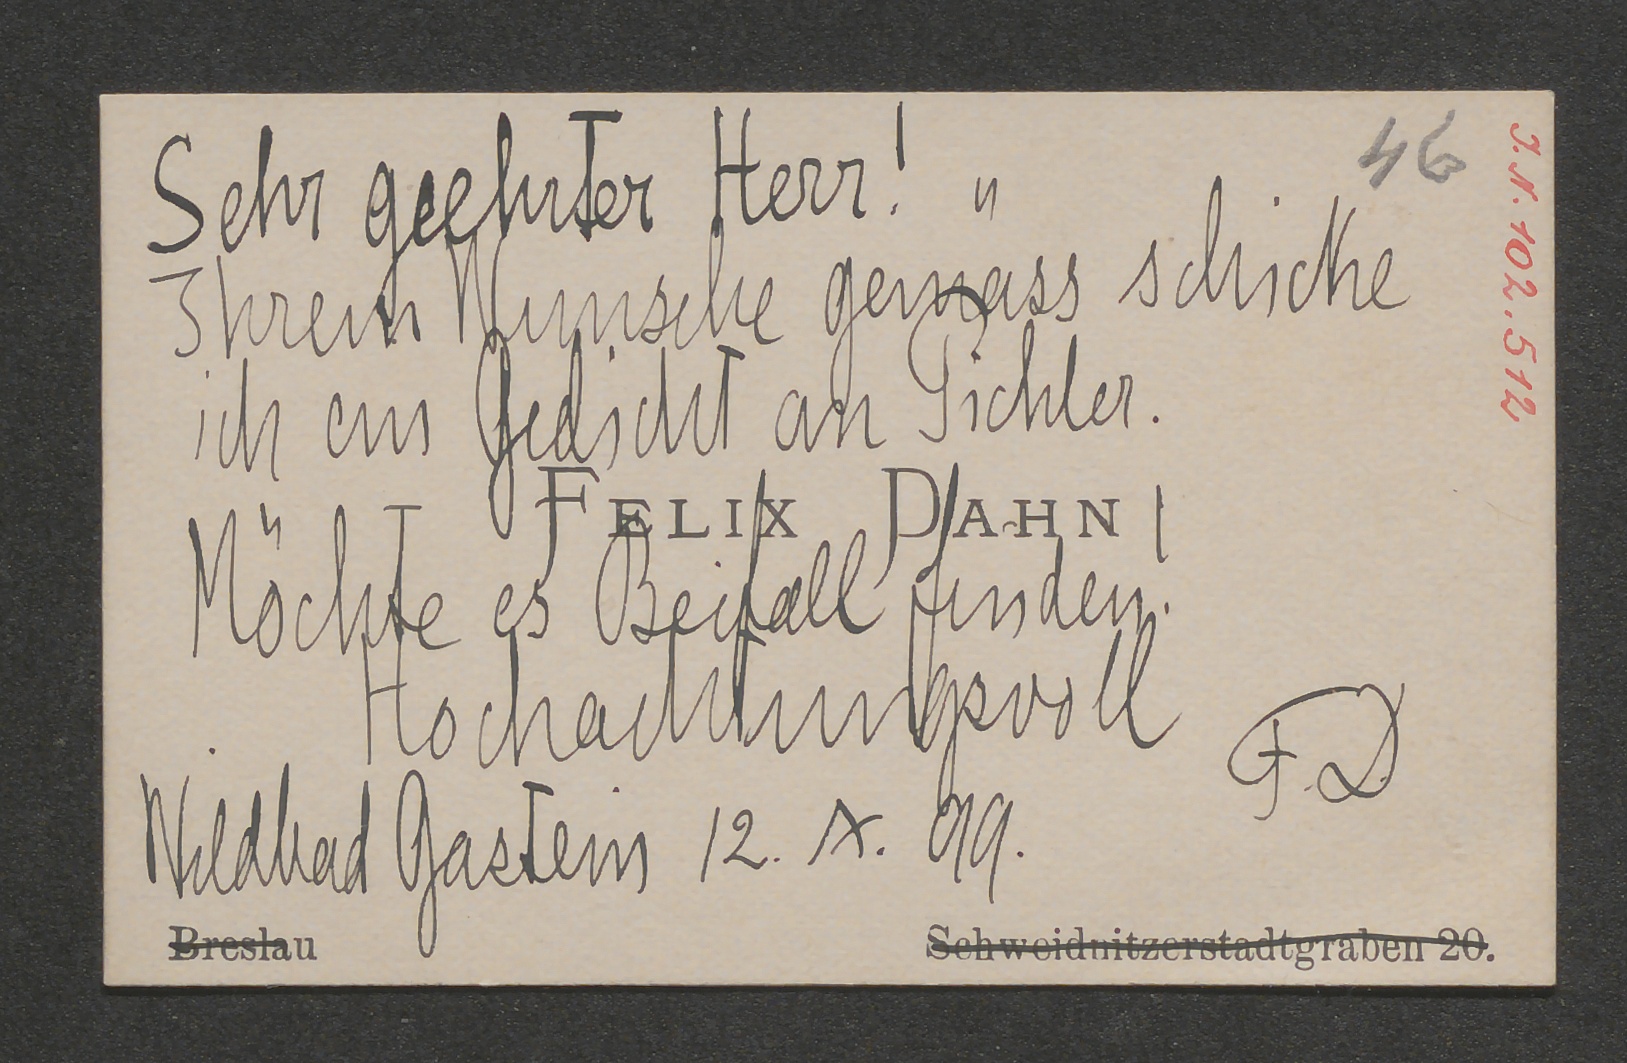 46
J.N. 102.512
Sehr geehrter Herr!
Ihrem Wunsche gemäss schicke
ich ein Gedicht an Pichler.
FELIX DAHN
Möchte es Beifall finden!
Hochachtungsvoll
F. D
Wildbad Gastein 12. X. 99.
Breslau
Schweidnitzerstadtgraben 20.